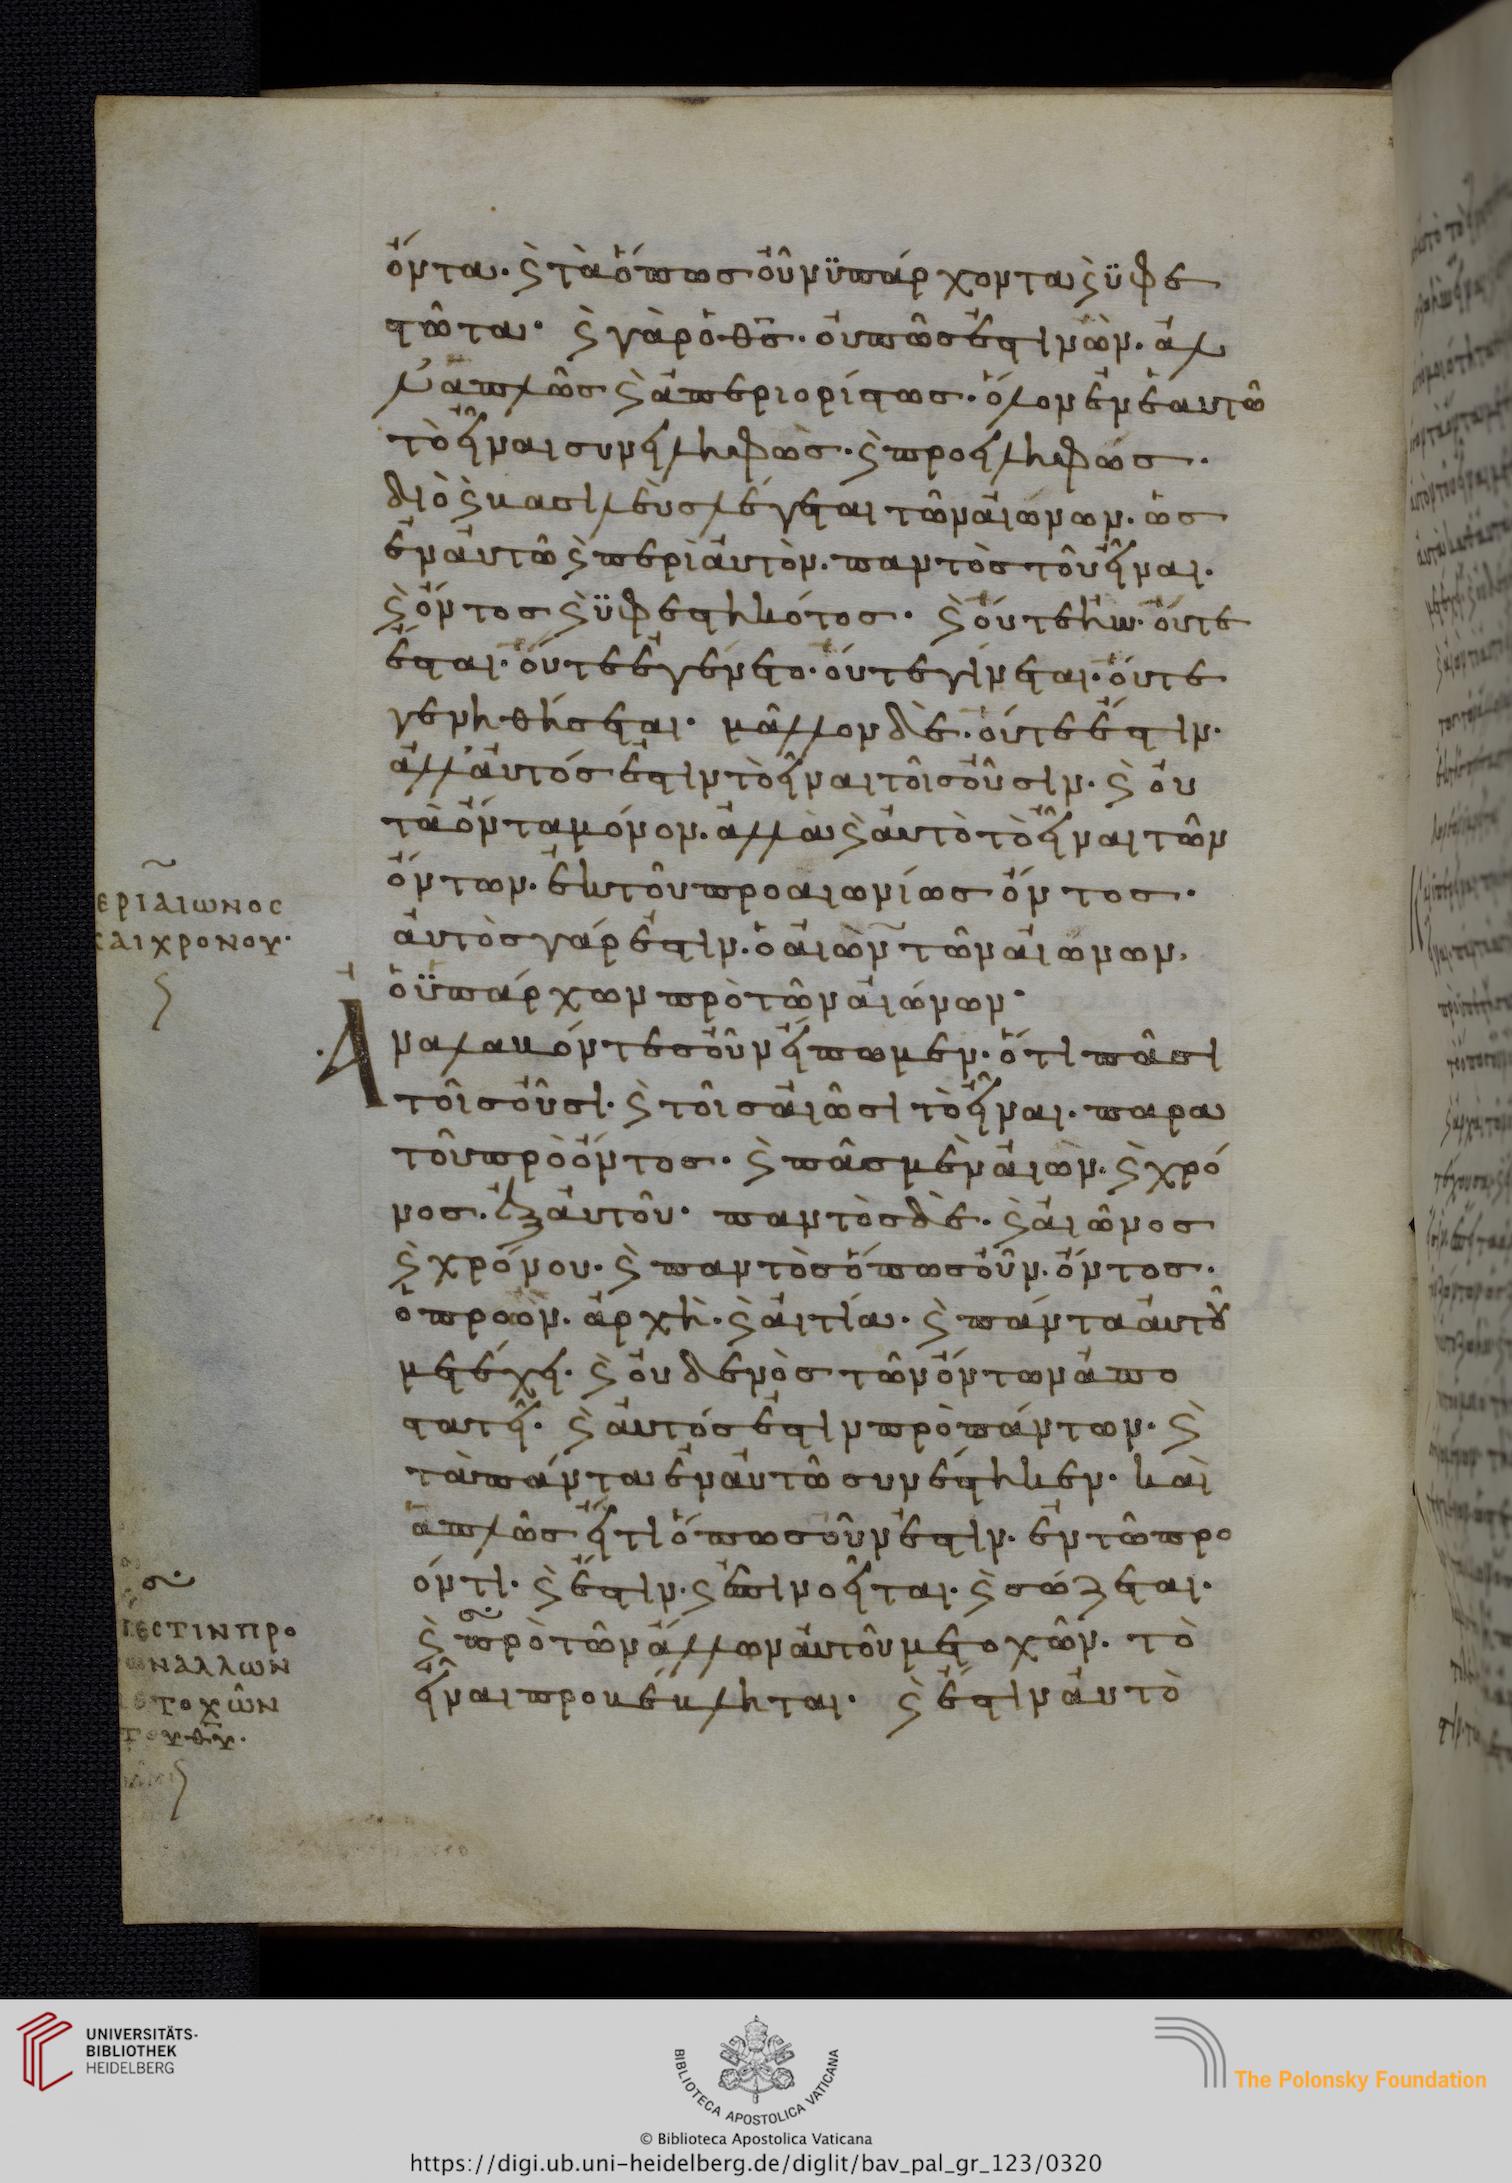 ὄντα· ϗ τὰ ὅπως οὖν ϋπάρχοντα ϗ ϋφε
στῶτα· ϗ γὰρ ὁ θς̅· οὐ πῶς ἐστιν ὤν· ἀλ
λ' ἁπλῶς ϗ ἀπεριορίστως· ὅλον ἐν ἑαυτῶ
τὸ εἶναι συνειληφὼς· ϗ προειληφώς·
διὸ ϗ βασιλεὺς λέγεται τῶν αἰώνων· ὡς
ἐν αὐτῶ ϗ περὶ αὐτὸν· παντὸς τοῦ εἶναι·
ϗ ὄντος ϗ ϋφεστηκότος· ϗ οὔτε ἦν· οὔτε
ἔσται· οὔτε ἐγένετο· οὔτε γίνεται· οὔτε
γενηθήσεται· μᾶλλον δὲ· οὔτε ἐστιν·
ἀλλ' αὐτός ἐστιν τὸ εἶναι τοῖς οὖσιν· ϗ οὐ
τὰ ὄντα μόνον· ἀλλὰ ϗ αὐτὸ τὸ εἶναι τῶν
ὄντων· ἐκ τοῦ προαιωνίως ὄντος·
αὐτὸς γάρ ἐστιν· ὁ αἰὼν τῶν αἰώνων,
ὁ ϋπάρχων πρὸ τῶν αἰώνων·
Ἀναλαβόντες οὖν εἴπωμεν· ὅτι πᾶσι
τοῖς οὖσι· ϗ τοῖς αἰῶσι τὸ εἶναι· παρα
τοῦ πρὸ ὄντος· ϗ πᾶς μὲν αἰὼν· ϗ χρό
νος· ἐξ αὐτοῦ· παντὸς δὲ· ϗ αἰῶνος
ϗ χρόνου· ϗ παντὸς ὅπωσοῦν· ὄντος·
ὁ προὼν· ἀρχὴ· ϗ αἰτία· ϗ πάντα αὐτοῦ
μετέχει· ϗ οὐδενὸς τῶν ὄντων ἀπο
στατεῖ· ϗ αὐτός ἐστιν πρὸ πάντων· ϗ
τὰ πάντα ἐν αὐτῶ συνέστηκεν· καὶ
ἁπλῶς εἴ τι ὅπωσοῦν ἐστιν· ἐν τῶ προ
όντι· ϗ ἔστιν· ϗ ἐπινοεῖται· ϗ σώζεται·
ϗ πρὸ τῶν ἄλλων αὐτοῦ μετοχῶν· τὸ
εἶναι προβέβληται· ϗ ἔστιν αὐτὸ
ΕΡΙ ΑΙΩΝΟC
ΚΑΙ ΧΡΟΝΟΥ·
ΕCΤΙΝ ΠΡΟ
ΩΝ ΑΛΛΩΝ
ΕΤΟΧΩ͂Ν
ΤΟΥ ΘΥ̅·
UNIVERSITÄTS-
BIBLIOTHEK
HEIDELBERG
BIBLIOTECA APOSTOLICA VATICANA
The Polonsky Foundation
© Biblioteca Apostolica Vaticana
https://digi.ub.uni-heidelberg.de/diglit/bav_pal_gr_123/0320